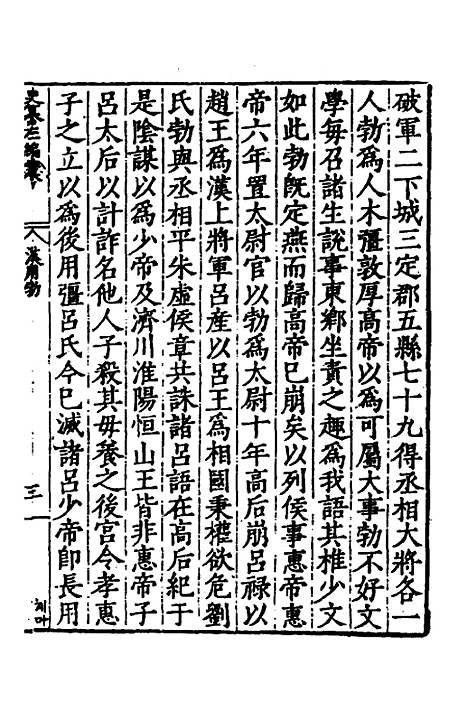 破軍二下城三定郡五縣七十九得丞相大將各一
人勃爲人木彊敦厚高帝以爲可屬大事勃不好文
學每召諸生說事東鄉坐責之趣爲我語其椎少文
如此勃既定燕而歸高帝已崩矣以列侯事惠帝惠
帝六年置太尉官以勃爲太尉十年高后崩呂祿以
趙王爲漢上將軍呂產以呂王爲相國秉權欲危劉
氏勃與丞相平朱虛侯章共誅諸呂語在高后紀于
是陰謀以爲少帝及濟川淮陽恒山王皆非惠帝子
呂太后以計詐名他人子殺其母養之後宮令孝惠
子之立以爲後用彊呂氏今已滅諸呂少帝卽長用
史 左編
漢周勃
三